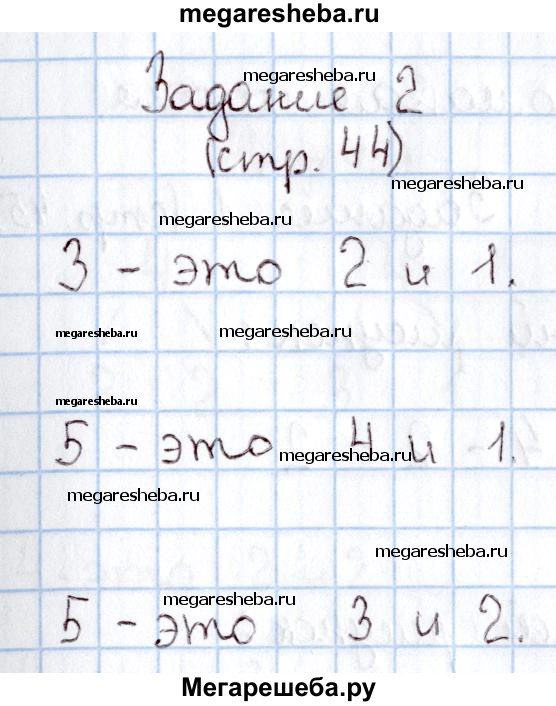 megaresheba.ru
megaresheba.ru
Задание 2
(стр. 44)
megaresheba.ru
megaresheba.ru
3 - это 2 и 1.
megaresheba.ru megaresheba.ru
megaresheba.ru
5 - это 4 и 1.
megaresheba.ru
megaresheba.ru
megaresheba.ru
megaresheba.ru
5 - это 3 и 2.
Мегарешеба.ру